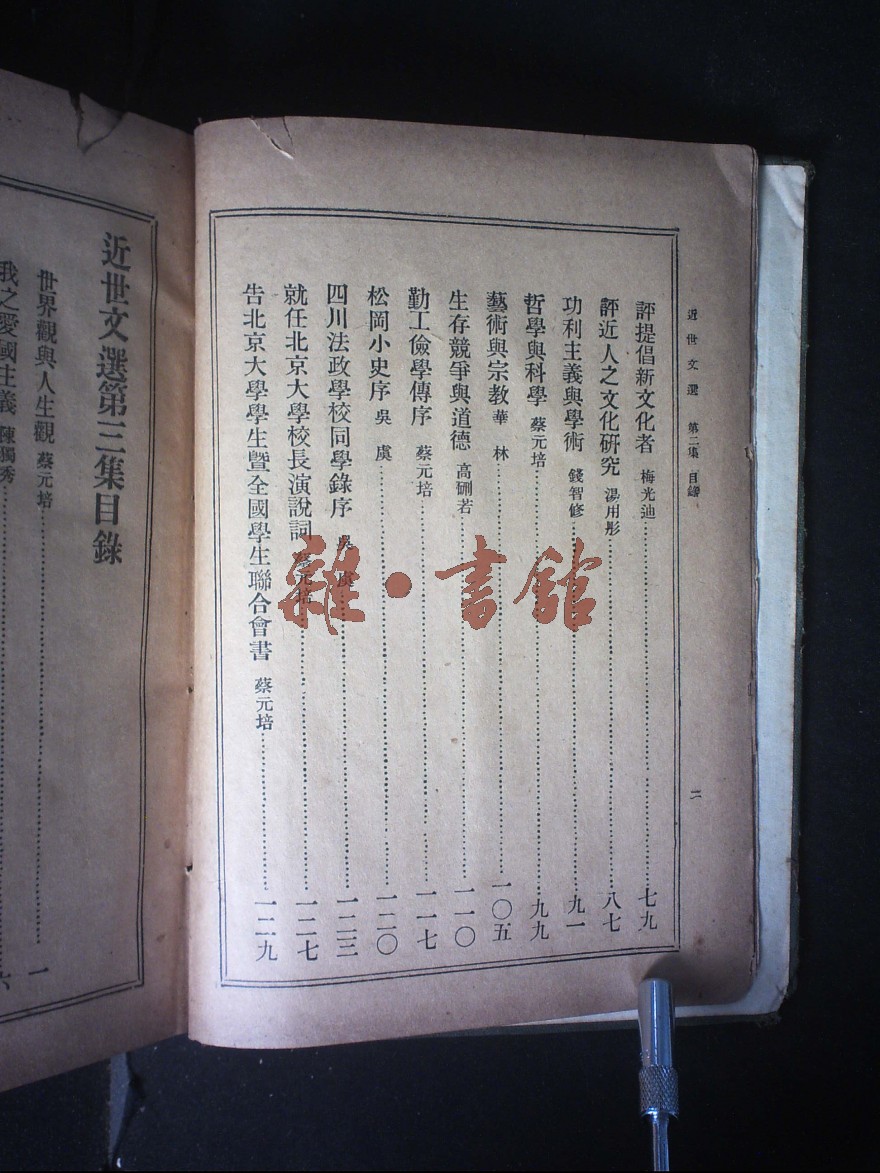 近世文選 第二集 目錄 二
評提倡新文化者 梅光迪 七九
評近人之文化研究 湯用彤 八七
功利主義與學術 錢智修 九一
哲學與科學 蔡元培 九九
藝術與宗教 華林 一〇五
生存競爭與道德 高硎若 一一〇
勤工儉學傳序 蔡元培 一一七
松岡小史序 吳虞 一二〇
四川法政學校同學錄序 吳虞 一二三
就任北京大學校長演說詞 蔡元培 一二七
告北京大學學生暨全國學生聯合會書 蔡元培 一二九
近世文選第三集目錄
世界觀與人生觀 蔡元培 一
我之愛國主義 陳獨秀 六
雜·書館